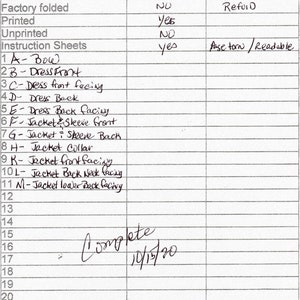 Factory folded NO Refold
Printed Yes
Unprinted NO
Instruction Sheets Yes /Readable
1 A- Bow
2 B- Dress Front
3 C- Dress front facing
4 D- Dress Back
5 E- Dress Back facing
6 F- Jacket & Sleeve front
7 G- Jacket & Sleeve Back
8 H- Jacket Collar
9 K- Jacket front facing
10 L- Jacket Back Neck facing
11 M- Jacket lower Back facing
12
13
14
15
16 Complete
17 10/15/20
18